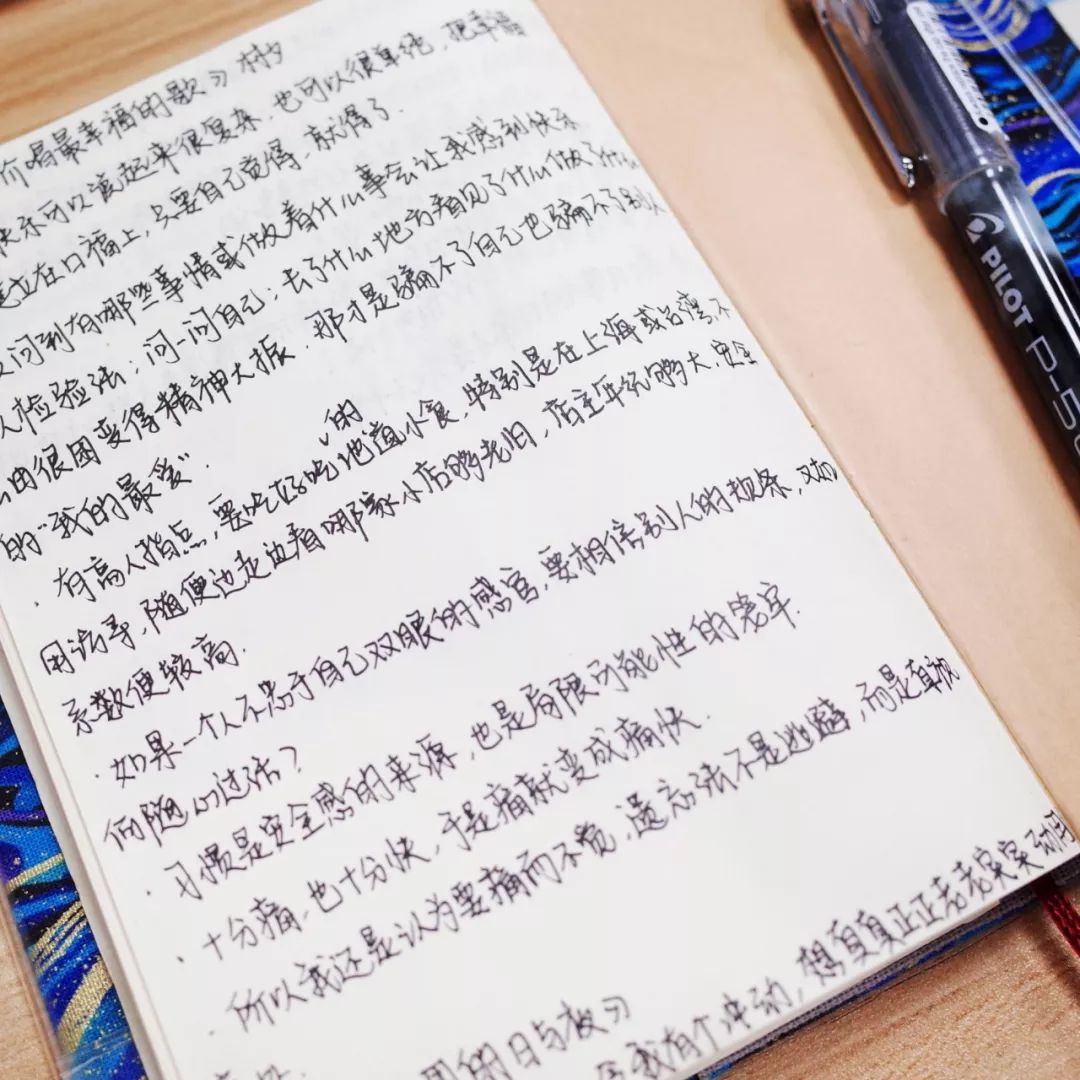 们唱最幸福的歌》林夕
快乐可以说起来很复杂,也可以很单纯,把幸福
建立在口福上,只要自己觉得,就得了.
问到有哪些事情或做着什么事会让我感到快乐
人检验法:问一问自己:去了什么地方看见了什么做了什么
由很困变得精神大振.那才是骗不了自己也骗不了别人
的"我的最爱".
·有高人指点,要吃好吃的地道小食,特别是在上海或台湾,不
用访寻,随便边走边看哪家小店够老旧,店主年纪够大,安全
系数便较高.
·如果一个人不忠于自己双眼的感官,要相信别人的规条,又如
何随心过活?
·习惯是安全感的来源,也是局限可能性的笼牢.
·十分痛,也十分快,于是痛就变成痛快.
·所以我还是认为要痛而不觉,遗忘法不是逃避,而是直视
的日与夜》
我有个冲动,想真真正正老老实实
PILOT
P-50